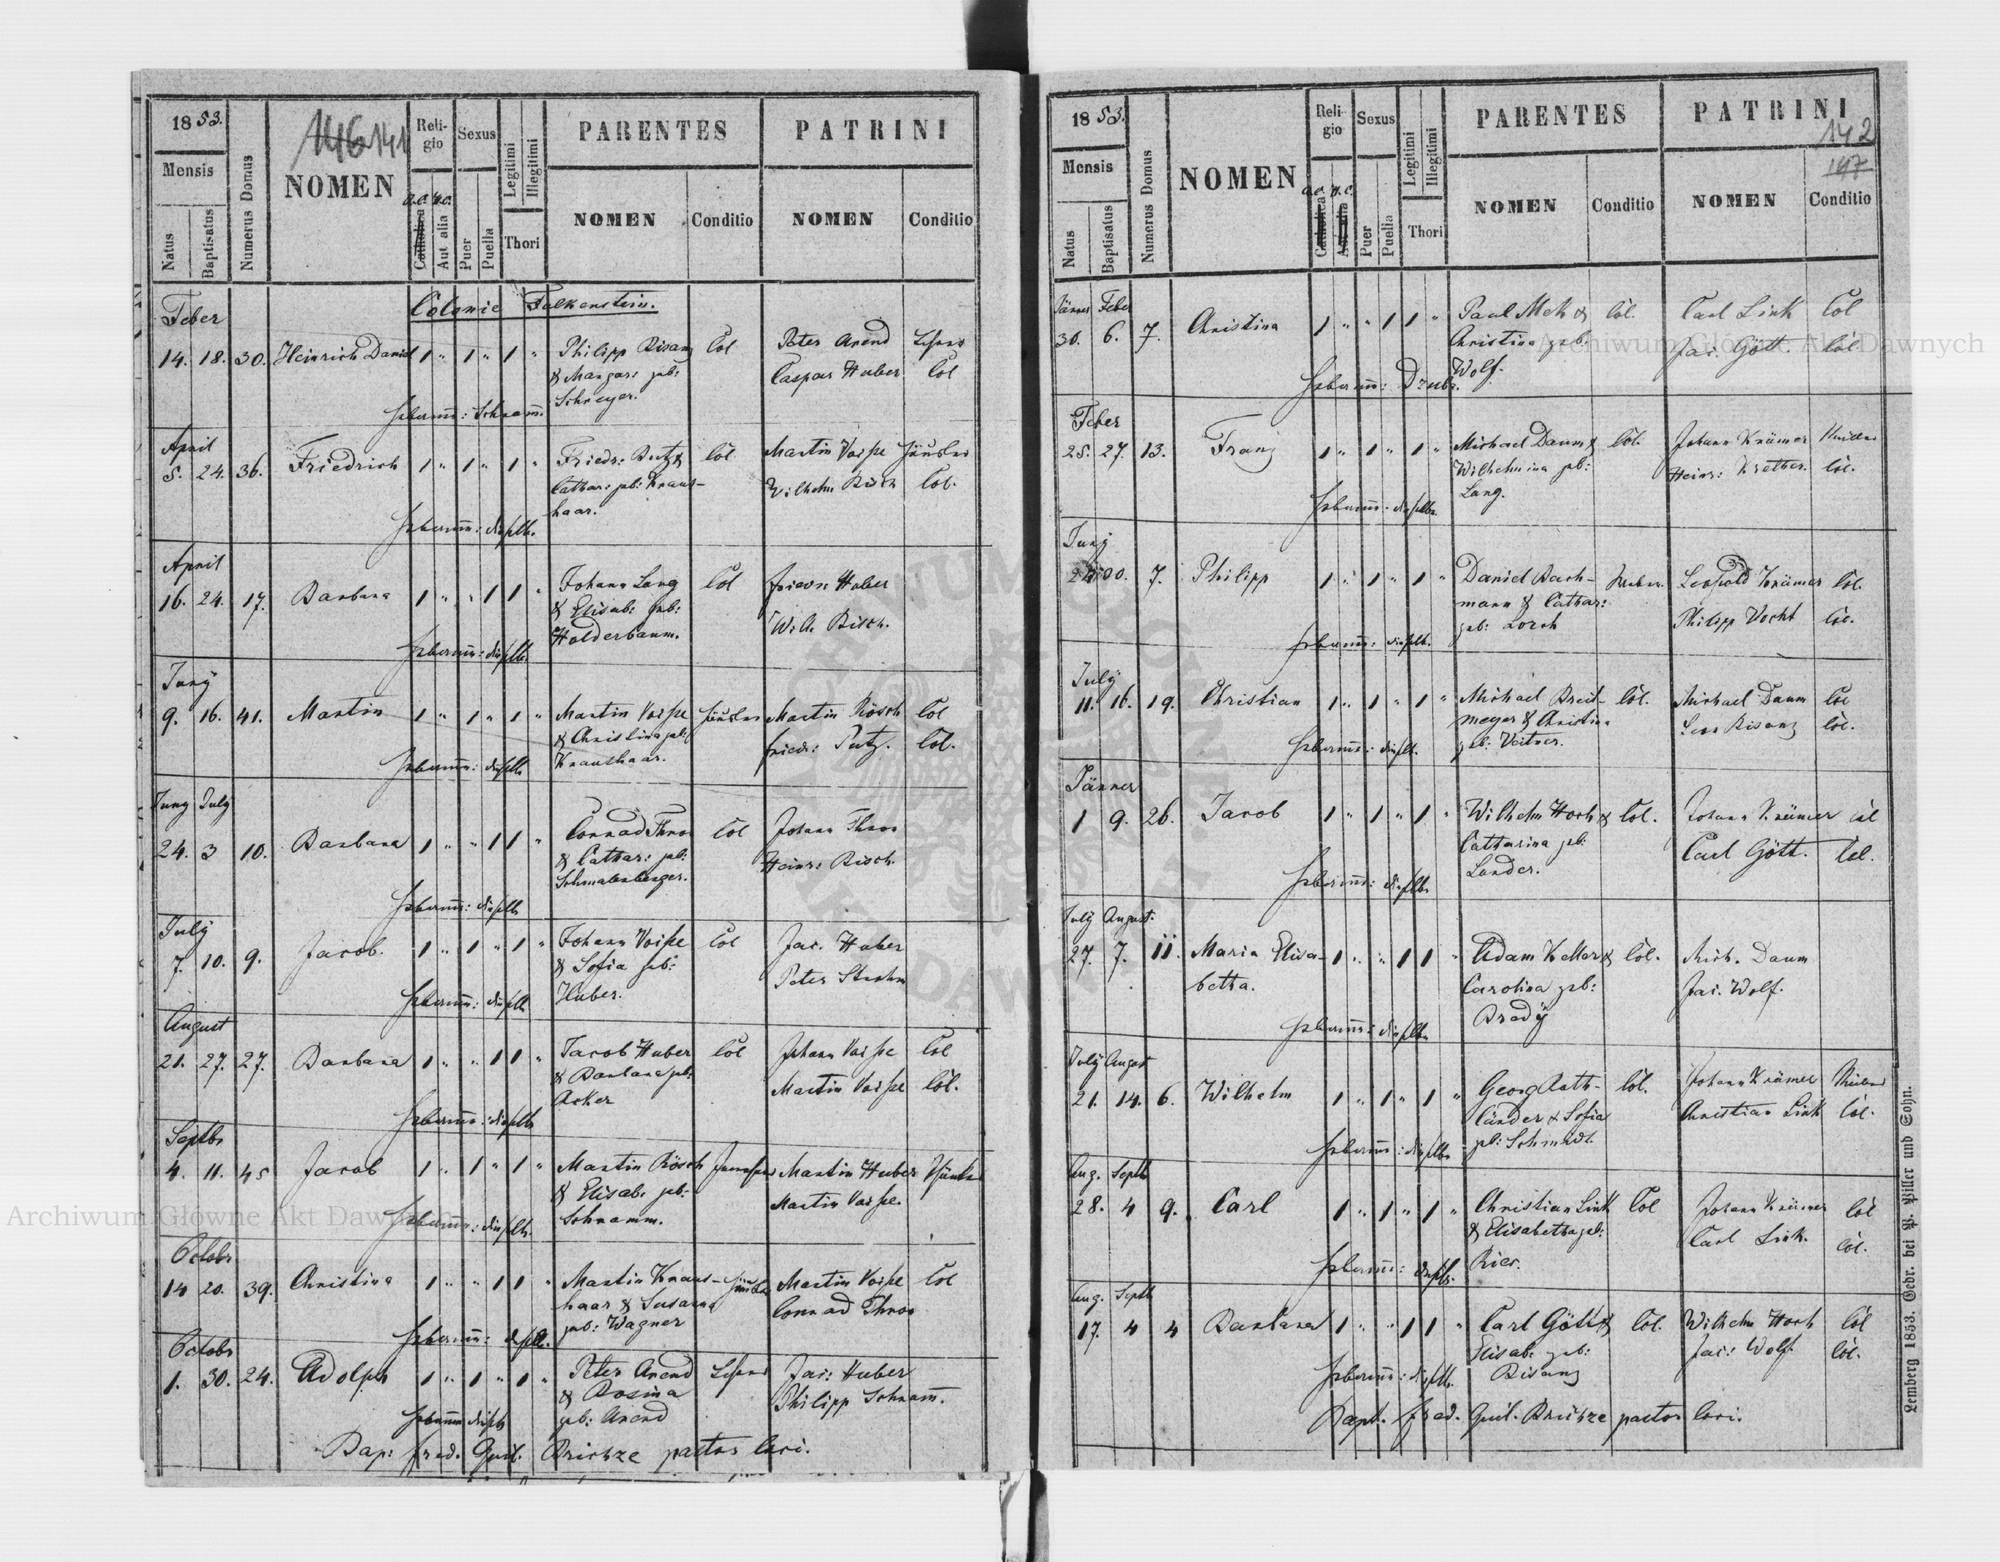 1853.
146 141
Mensis
Natus
Baptisatus
Numerus Domus
NOMEN
Religio
A.C. H.C.
Catholica
Aut alia
Sexus
Puer
Puella
Legitimi
Illegitimi
Thori
PARENTES
NOMEN
Conditio
PATRINI
NOMEN
Conditio
Colonie Falkenstein.
Feber
14. 18. 30. Heinrich Daniel 1 " 1 " 1 " Philipp Bisanz Col Peter Arend
& Margar: geb: Caspar Huber Col
Schreyer.
Hebamm: Schramm.
April
5. 24. 36. Friedrich 1 " 1 " 1 " Friedr: Butz & Col Martin Voise
Cathar: geb: Kraus- Wilhelm Bisch Col.
haar.
Hebamm: dieselbe.
April
16. 24. 17. Barbara 1 " " 1 1 " Johann Lang Col Friedr: Huber
& Elisab: geb: Wilh. Bisch.
Holderbaum.
Hebamm: dieselbe.
Juny
9. 16. 41. Martin 1 " 1 " 1 " Martin Voise Martin Rösch Col
& Christina geb: Friedr: Putz. Col.
Kraushaar.
Hebamm: dieselbe
Juny July
24. 3 10. Barbara 1 " " 1 1 " Conrad Thron Col Johann Thron
& Cathar: geb: Heinr: Bisch.
Schmalenberger.
Hebamm: dieselbe
July
7. 10. 9. Jacob. 1 " 1 " 1 " Johann Voise Col Jac. Huber
& Sofia geb: Peter Strohm
Huber.
Hebamm: dieselbe
August
21. 27. 27. Barbara 1 " " 1 1 " Jacob Huber Col Johann Voise Col
& Barbara geb: Martin Voise Col.
Acker
Hebamm: dieselbe
Septbr
4. 11. 45 Jacob 1 " 1 " 1 " Martin Rösch Martin Huber
& Elisab: geb: Martin Voise.
Schramm.
Hebamm: dieselbe.
Octobr
14 20. 39. Christina 1 " " 1 1 " Martin Kraus- Martin Voise Col
haar & Susanna Conrad Thron
geb: Wagner
Hebamm: dieselbe.
Octobr
1. 30. 24. Adolph 1 " 1 " 1 " Peter Arend Jac: Huber
& Rosina Philipp Schramm.
geb: Arend
Hebamm dieselbe
Bap: Fred. Guil. Brichze pastor loci.
1853.
Mensis
Natus
Baptisatus
Numerus Domus
NOMEN
Religio
A.C. H.C.
Catholica
Aut alia
Sexus
Puer
Puella
Legitimi
Illegitimi
Thori
PARENTES
NOMEN
Conditio
PATRINI
142
147
NOMEN
Conditio
Jänner Feber
30. 6. 7. Christina 1 " " 1 1 " Paul Mek & Col. Carl Link Col
Christina geb: Jac. Gött. Col
Wolf.
Hebamm:
Feber
25. 27. 13. Franz 1 " 1 " 1 " Michael Daum & Col. Johann Krämer
Wilhelmina geb: Heinr: Kretter. Col.
Lang.
Hebamm: dieselbe.
Juny
7. Philipp 1 " 1 " 1 " Daniel Bach- Leopold Krämer Col.
mann & Cathar: Philipp Vocht Col.
geb: Lorch
Hebamm: dieselbe.
July
11. 16. 19. Christian 1 " 1 " 1 " Michael Breit- Col. Michael Daum Col
meyer & Christina Bisanz Col.
geb: Veitner.
Hebamm: dieselbe.
Jänner
1 9. 26. Jacob 1 " 1 " 1 " Wilhelm Horh & Col. Johann Krämer Col
Catharina geb: Carl Gött. Col.
Lander.
Hebamm: dieselbe
July August.
27. 7. 11. Maria Elisa- 1 " " 1 1 " Adam Keller & Col. Mich. Daum
betta. Carolina geb: Jac. Wolf.
Brady
Hebamm: dieselbe
July August
21. 14. 6. Wilhelm 1 " 1 " 1 " Georg Rath- Col. Johann Krämer
länder & Sofia Christian Link Col.
geb: Schmidt.
Hebamm: dieselbe
Aug. Septb
28. 4 9. Carl 1 " 1 " 1 " Christian Link Col Johann Krämer Col
& Elisabetha geb: Carl Link. Col.
Rier.
Hebamm: dieselbe.
Aug. Septb
17. 4 4 Barbara 1 " " 1 1 " Carl Gött & Col. Wilhelm Horh Col
Elisab: geb: Jac: Wolf. Col.
Bisanz
Hebamm: dieselbe.
Bapt. Fred. Guil. Brichze pastor loci.
Lemberg 1853. Gedr. bei P. Piller und Sohn.
Archiwum Główne Akt Dawnych
Archiwum Główne Akt Dawnych